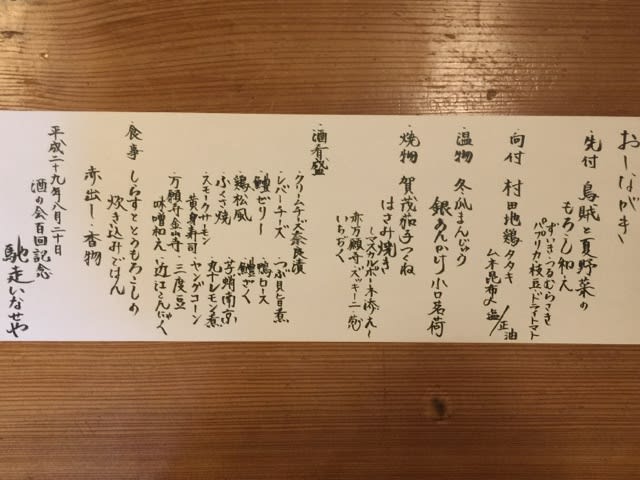 おしながき
・先付 烏賊と夏野菜の
もろこし和え
ずいき・つるむらさき
パプリカ・枝豆・ドライトマト
・向付 村田地鶏タタキ
ムネ昆布〆 塩/正油
・温物 冬瓜まんじゅう
銀あんかけ 小口茗荷
・焼物 賀茂茄子つくね
はさみ焼き
〜マスカルポーネ添え〜
赤万願寺・ズッキーニ
いちぢく
・酒肴盛
・クリームチーズ奈良漬
・レバーチーズ ・つぶ貝旨煮
・鱧ゼリー ・鴨ロース
・鶏松風 ・鱧ざく
・ふくさ焼 ・子蛸南京
・スモークサーモン 丸十レモン煮
黄身寿司・ヤングコーン
・万願寺金山寺 ・三度豆
味噌和え ・近江こんにゃく
・食事 しらすととうもろこしの
炊き込みごはん
赤出し・香物
平成二十九年八月二十日
酒の会百回記念
馳走いなせや